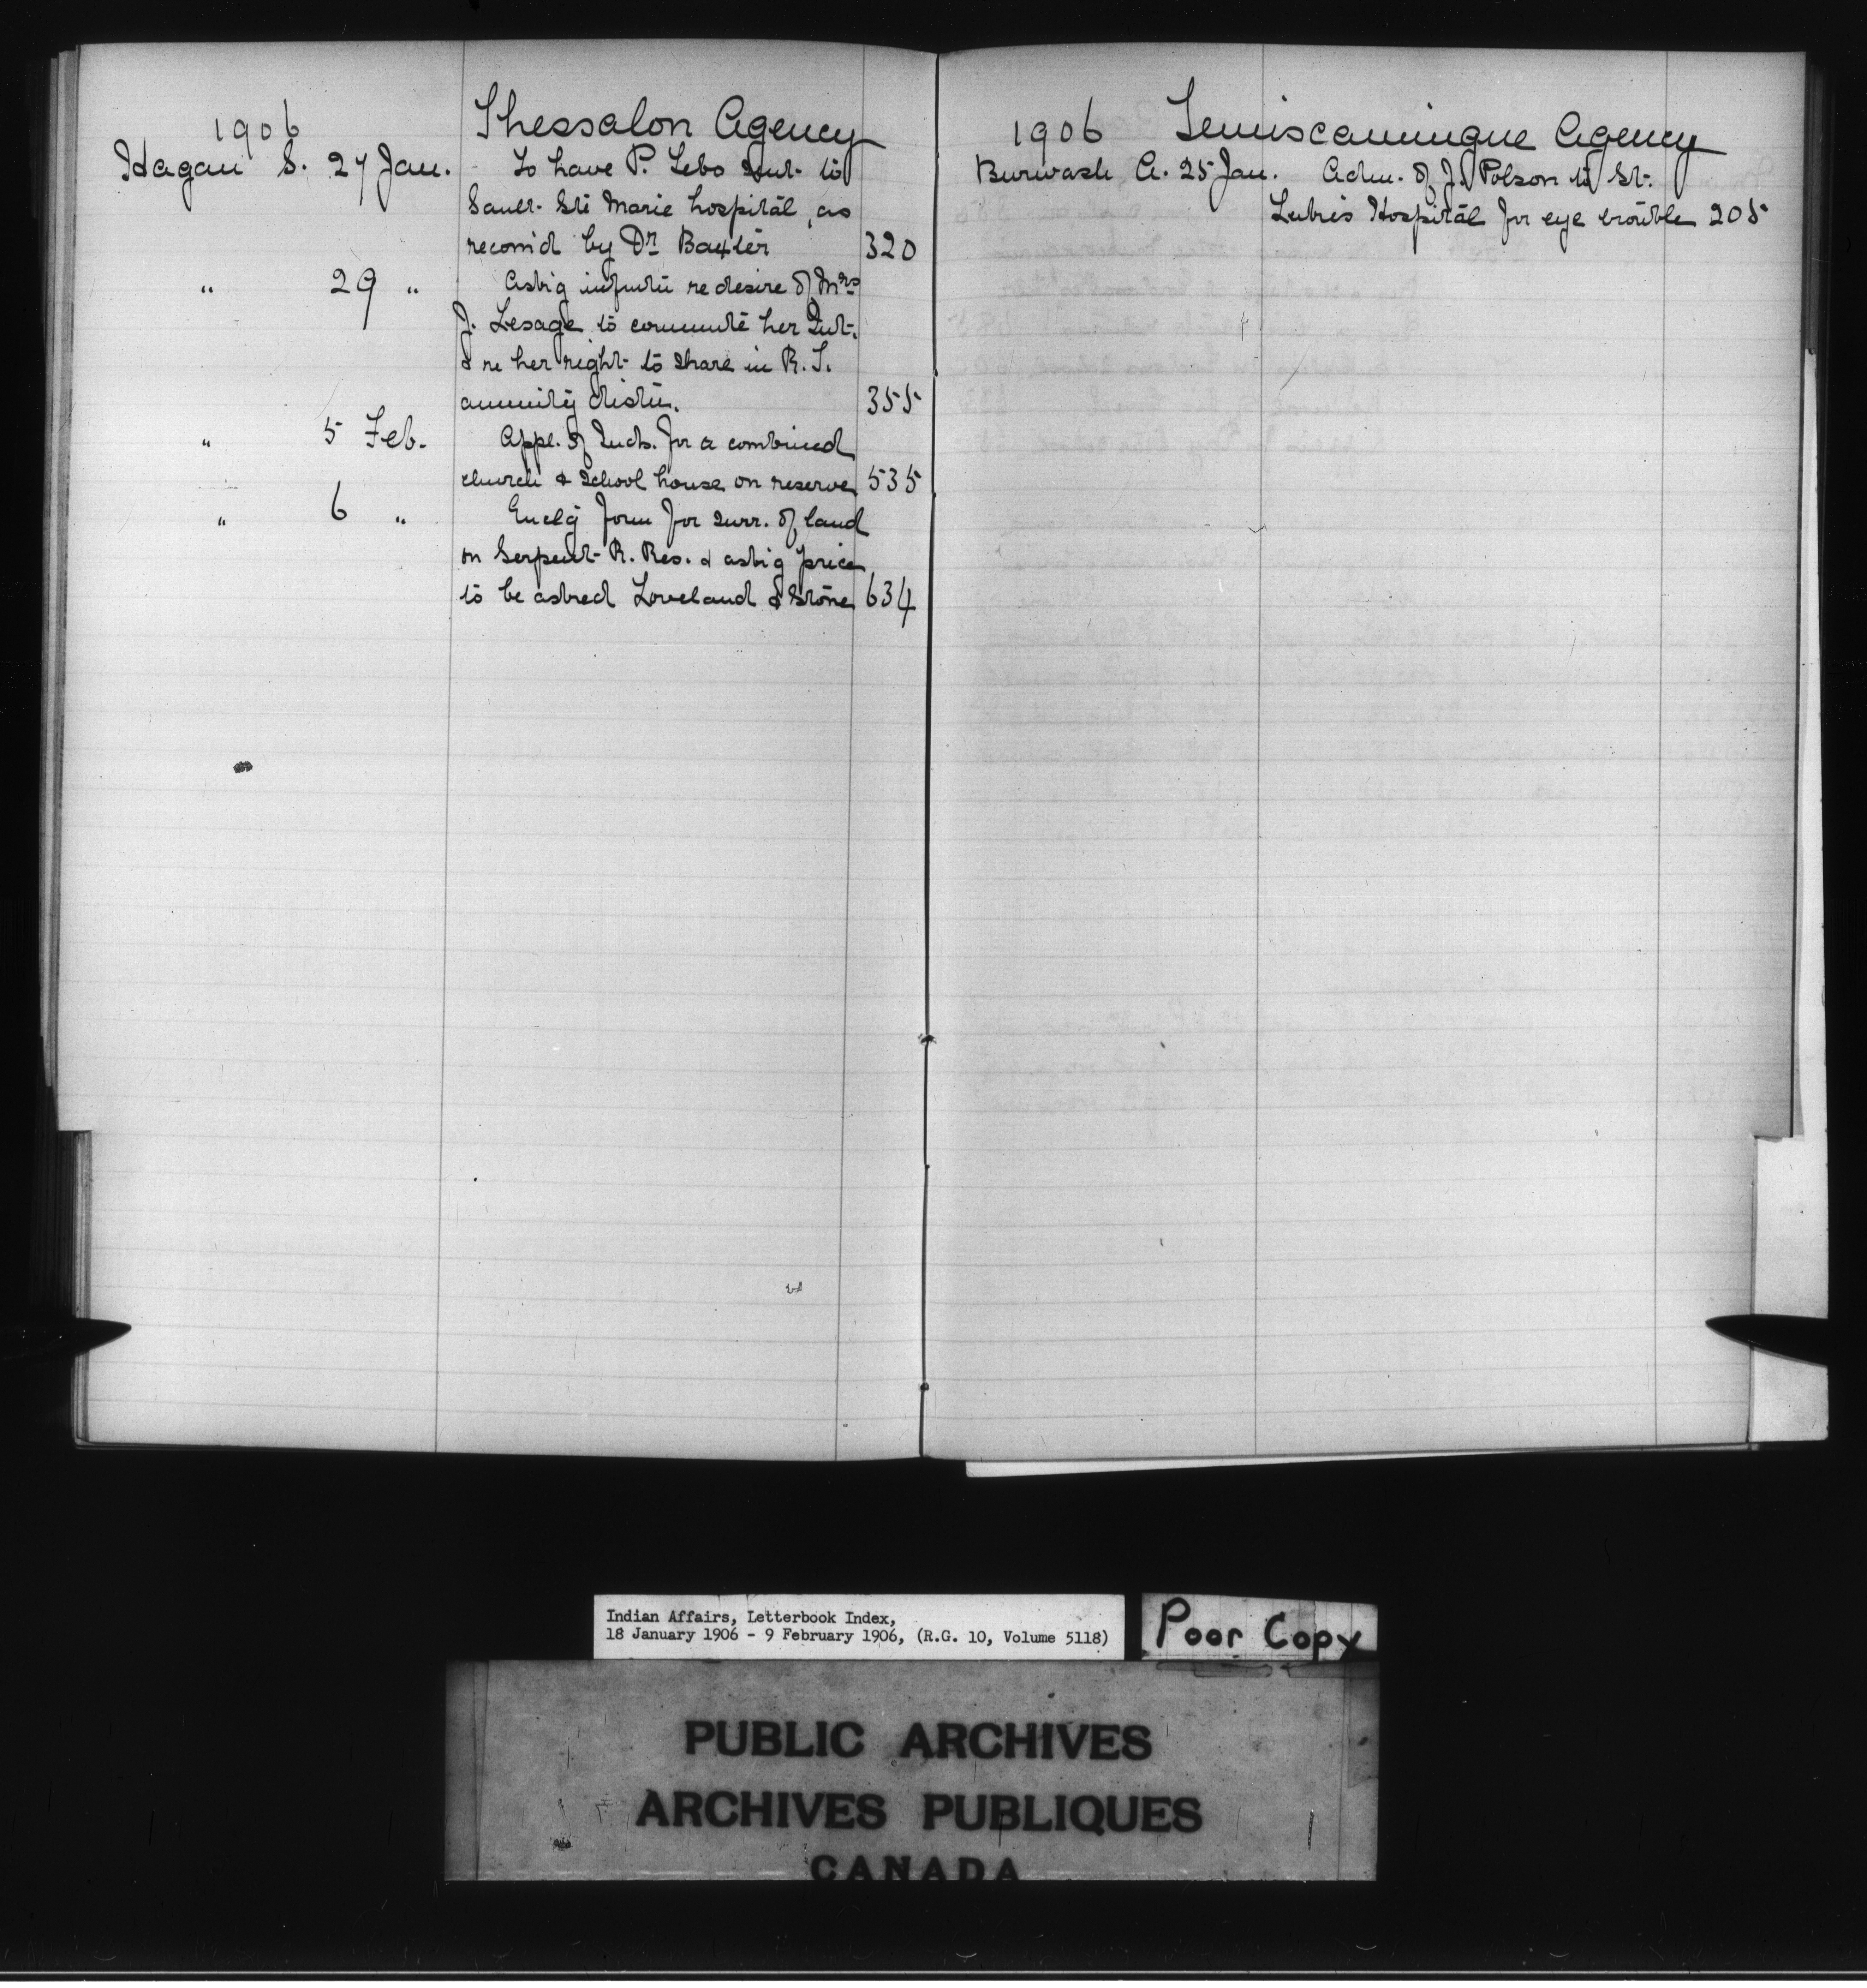 1906 Thessalon Agency
Hagan S. 27 Jan. To have P. Lebo sent to
Sault Ste Marie hospital, as
recom'd by Dr. Baxter 320
" 29 " Ask'g inform'n re desire of Mrs
J. Lesage to commute her Int.
& re her right to share in R. T.
annuity distn. 355
" 5 Feb. Appl. of Inds. for a combined
church & school house on reserve 535
" 6 " Encl'g form for surr. of land
on Serpent R. Res. & ask'g price
to be asked Loveland & Stone 634
1906 Temiscamingue Agency
Burwash A. 25 Jan. Adm. of J. Polson to St.
Luke's Hospital for eye trouble 205
Indian Affairs, Letterbook Index,
18 January 1906 - 9 February 1906, (R.G. 10, Volume 5118)
Poor Copy
PUBLIC ARCHIVES
ARCHIVES PUBLIQUES
CANADA